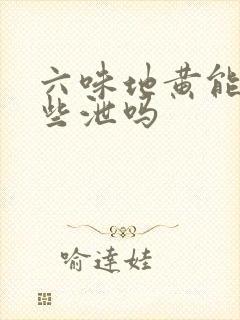 六味地黄能
些泄吗
喻達娃